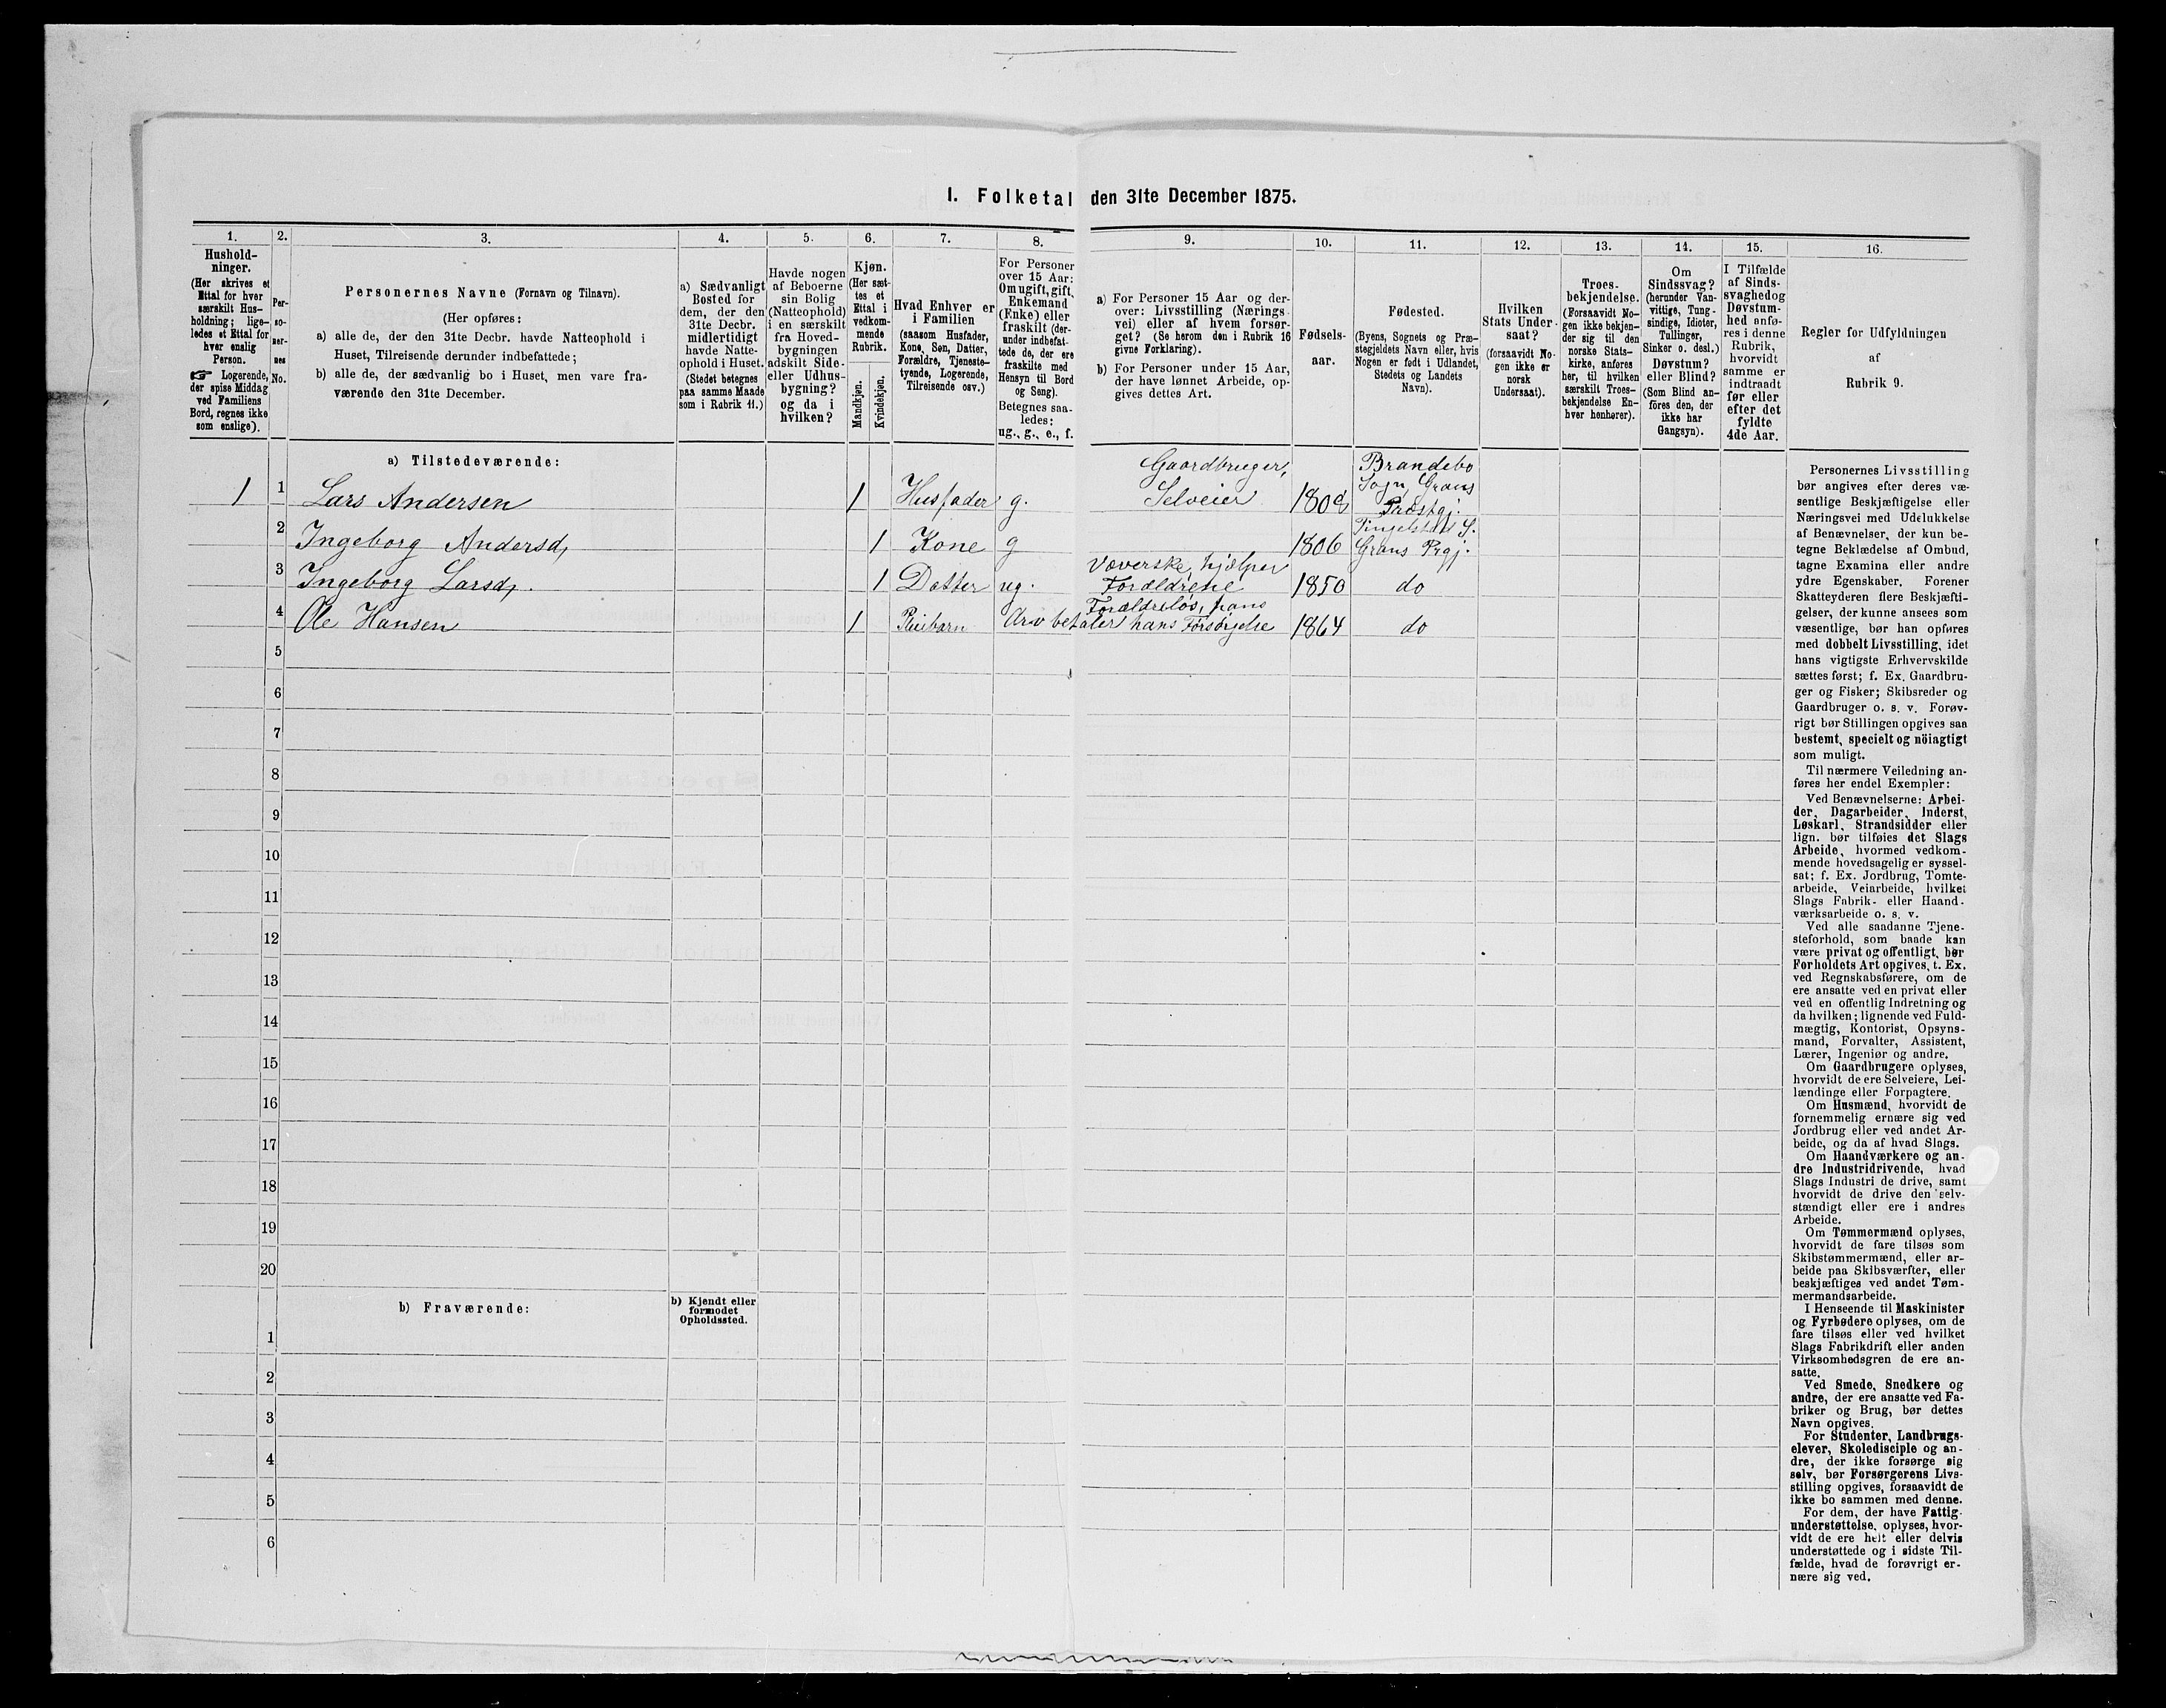 I. Folketal den 31te December 1875.
1.
Hushold-
ninger.
(Her skrives et
Ettal for hver
særskilt Hus-
holdning; lige-
ledes et Ettal for
hver enslig
Person.
☞ Logerende,
der spise Middag
ved Familiens
Bord, regnes ikke
som enslige).
2.
Per-
so-
ner-
nes
No.
3.
Personernes Navne (Fornavn og Tilnavn).
(Her opføres:
a) alle de, der den 31te Decbr. havde Natteophold i
Huset, Tilreisende derunder indbefattede;
b) alle de, der sædvanlig bo i Huset, men vare fra-
værende den 31te December.
4.
a) Sædvanligt
Bosted for
dem, der den
31te Decbr.
midlertidigt
havde Natte-
ophold i Huset.
(Stedet betegnes
paa samme Maade
som i Rubrik 11.)
5.
Havde nogen
af Beboerne
sin Bolig
(Natteophold)
i en særskilt
fra Hoved-
bygningen
adskilt Side-
eller Udhus-
bygning?
og da i
hvilken?
6.
Kjøn.
(Her sæt-
tes et
Ettal i
vedkom-
mende
Rubrik.
Mandkjøn.
Kvindekjøn.
7.
Hvad Enhver er
i Familien
(saasom Husfader,
Kone, Søn, Datter,
Forældre, Tjeneste-
tyende, Logerende,
Tilreisende osv.)
8.
For Personer
over 15 Aar:
Om ugift, gift,
Enkemand
(Enke) eller
fraskilt (der-
under indbefat-
tede de, der ere
fraskilte med
Hensyn til Bord
og Seng).
Betegnes saa-
ledes:
ug., g., e., f.
9.
a) For Personer 15 Aar og der-
over: Livsstilling (Nærings-
vei) eller af hvem forsør-
get? (Se herom den i Rubrik 16
givne Forklaring).
b) For Personer under 15 Aar,
der have lønnet Arbeide, op-
gives dettes Art.
10.
Fødsels-
aar.
11.
Fødested.
(Byens, Sognets og Præ-
stegjeldets Navn eller, hvis
Nogen er født i Udlandet,
Stedets og Landets
Navn).
12.
Hvilken
Stats Under-
saat?
(forsaavidt No-
gen ikke er
norsk
Undersaat).
13.
Troes-
bekjendelse.
(Forsaavidt No-
gen ikke bekjen-
der sig til den
norske Stats-
kirke, anføres
her, til hvilken
særskilt Troes-
bekjendelse En-
hver henhører).
14.
Om
Sindssvag?
(herunder Van-
vittige, Tung-
sindige, Idioter,
Tullinger,
Sinker o. desl.)
Døvstum?
eller Blind?
(Som Blind an-
føres den, der
ikke har
Gangsyn).
15.
I Tilfælde
af Sinds-
svaghed og
Døvstum-
hed anfø-
res i denne
Rubrik,
hvorvidt
samme er
indtraadt
før eller
efter det
fyldte
4de Aar.
16.
Regler for Udfyldningen
af
Rubrik 9.
a) Tilstedeværende:
1 1 Lars Andersen 1 Husfader g. Gaardbruger, Selveier 1808 Brandebo Sogn, Grans Præstgj.
2 Ingeborg Andersd, 1 Kone g 1806 Tingelstad S. Grans Prgj.
3 Ingeborg Larsd, 1 Datter ug. Væverske, hjælper Forældrene 1850 do
4 Ole Hansen 1 Pleiebarn Forældreløs, hans Arv betaler hans Forsørgelse 1864 do
5
6
7
8
9
10
11
12
13
14
15
16
17
18
19
20
b) Fraværende:
b) Kjendt eller
formodet
Opholdssted.
1
2
3
4
5
6
Personernes Livsstilling
bør angives efter deres væ-
sentlige Beskjæftigelse eller
Næringsvei med Udelukkelse
af Benævnelser, der kun be-
tegne Beklædelse af Ombud,
tagne Examina eller andre
ydre Egenskaber. Forener
Skatteyderen flere Beskjæfti-
gelser, der kunne ansees som
væsentlige, bør han opføres
med dobbelt Livsstilling, idet
hans vigtigste Erhvervskilde
sættes først; f. Ex. Gaardbru-
ger og Fisker; Skibsreder og
Gaardbruger o. s. v. Forøv-
rigt bør Stillingen opgives saa
bestemt, specielt og nöiagtigt
som muligt.
Til nærmere Veiledning an-
føres her endel Exempler:
Ved Benævnelserne: Arbei-
der, Dagarbeider, Inderst,
Løskarl, Strandsidder eller
lign. bør tilføies det Slags
Arbeide, hvormed vedkom-
mende hovedsagelig er syssel-
sat; f. Ex. Jordbrug, Tomte-
arbeide, Veiarbeide, hvilket
Slags Fabrik- eller Haand-
værksarbeide o. s. v.
Ved alle saadanne Tjene-
steforhold, som baade kan
være privat og offentligt, bør
Forholdets Art opgives, t. Ex.
ved Regnskabsførere, om de
ere ansatte ved en privat eller
ved en offentlig Indretning og
da hvilken; lignende ved Fuld-
mægtig, Kontorist, Opsyns-
mand, Forvalter, Assistent,
Lærer, Ingeniør og andre.
Om Gaardbrugere oplyses,
hvorvidt de ere Selveiere, Lei-
lændinge eller Forpagtere.
Om Husmænd, hvorvidt de
fornemmelig ernære sig ved
Jordbrug eller ved andet Ar-
beide, og da af hvad Slags.
Om Haandværkere og an-
dre Industridrivende, hvad
Slags Industri de drive, samt
hvorvidt de drive den selv-
stændigt eller ere i andres
Arbeide.
Om Tømmermænd oplyses,
hvorvidt de fare tilsøs som
Skibstømmermænd, eller ar-
beide paa Skibsværfter, eller
beskjæftiges ved andet Tøm-
mermandsarbeide.
I Henseende til Maskinister
og Fyrbødere oplyses, om de
fare tilsøs eller ved hvilket
Slags Fabrikdrift eller anden
Virksomhedsgren de ere an-
satte.
Ved Smede, Snedkere og
andre, der ere ansatte ved Fa-
briker og Brug, bør dettes
Navn opgives.
For Studenter, Landbrugs-
elever, Skoledisciple og an-
dre, der ikke forsørge sig
selv, bør Forsørgerens Livs-
stilling opgives, forsaavidt de
ikke bo sammen med denne.
For dem, der have Fattig-
understøttelse, oplyses, hvor-
vidt de ere helt eller delvis
understøttede og i sidste Til-
fælde, hvad de forøvrigt er-
nære sig ved.